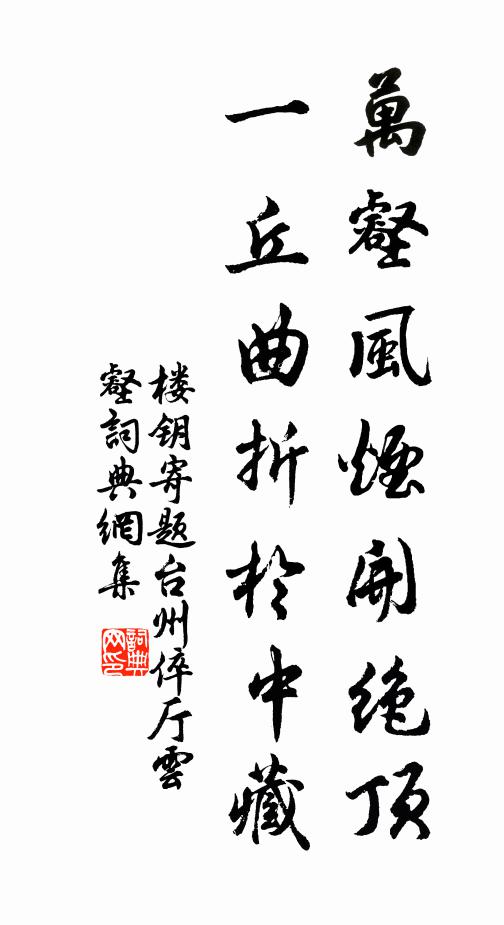 萬壑風煙開絶頂
一丘曲折於中藏
楼钥寄题台州倅厅雲
壑詞典網集
詞典网印